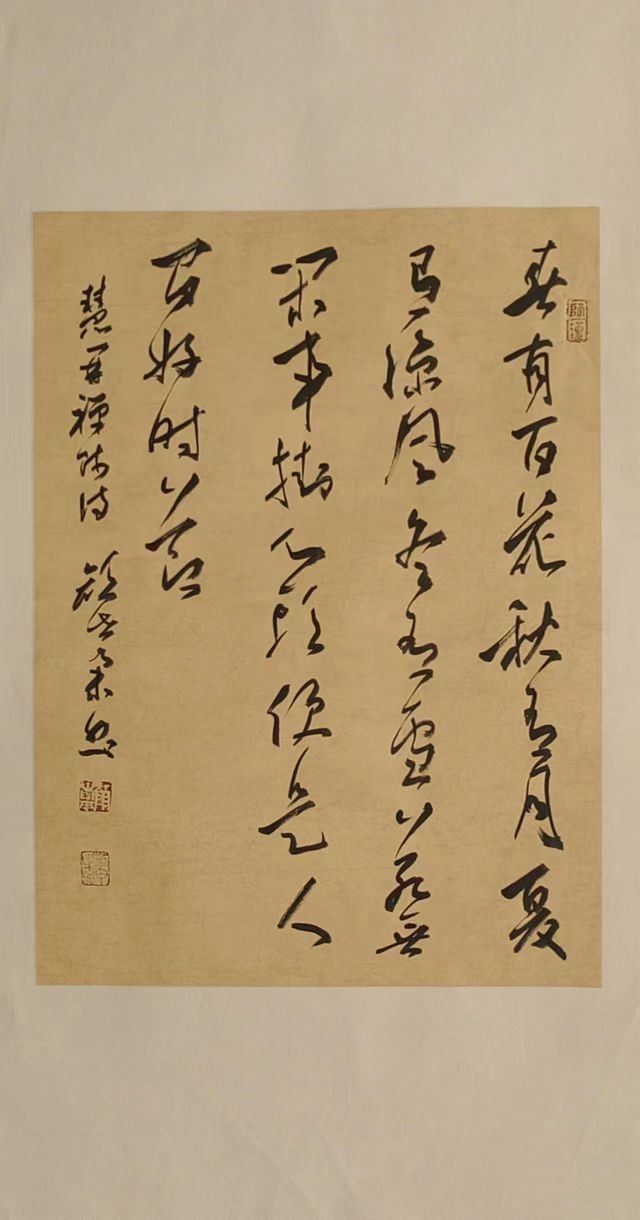 春有百花秋有月夏
有凉风冬有雪若無
闲事掛心头便是人
间好时节
慧开禅师诗